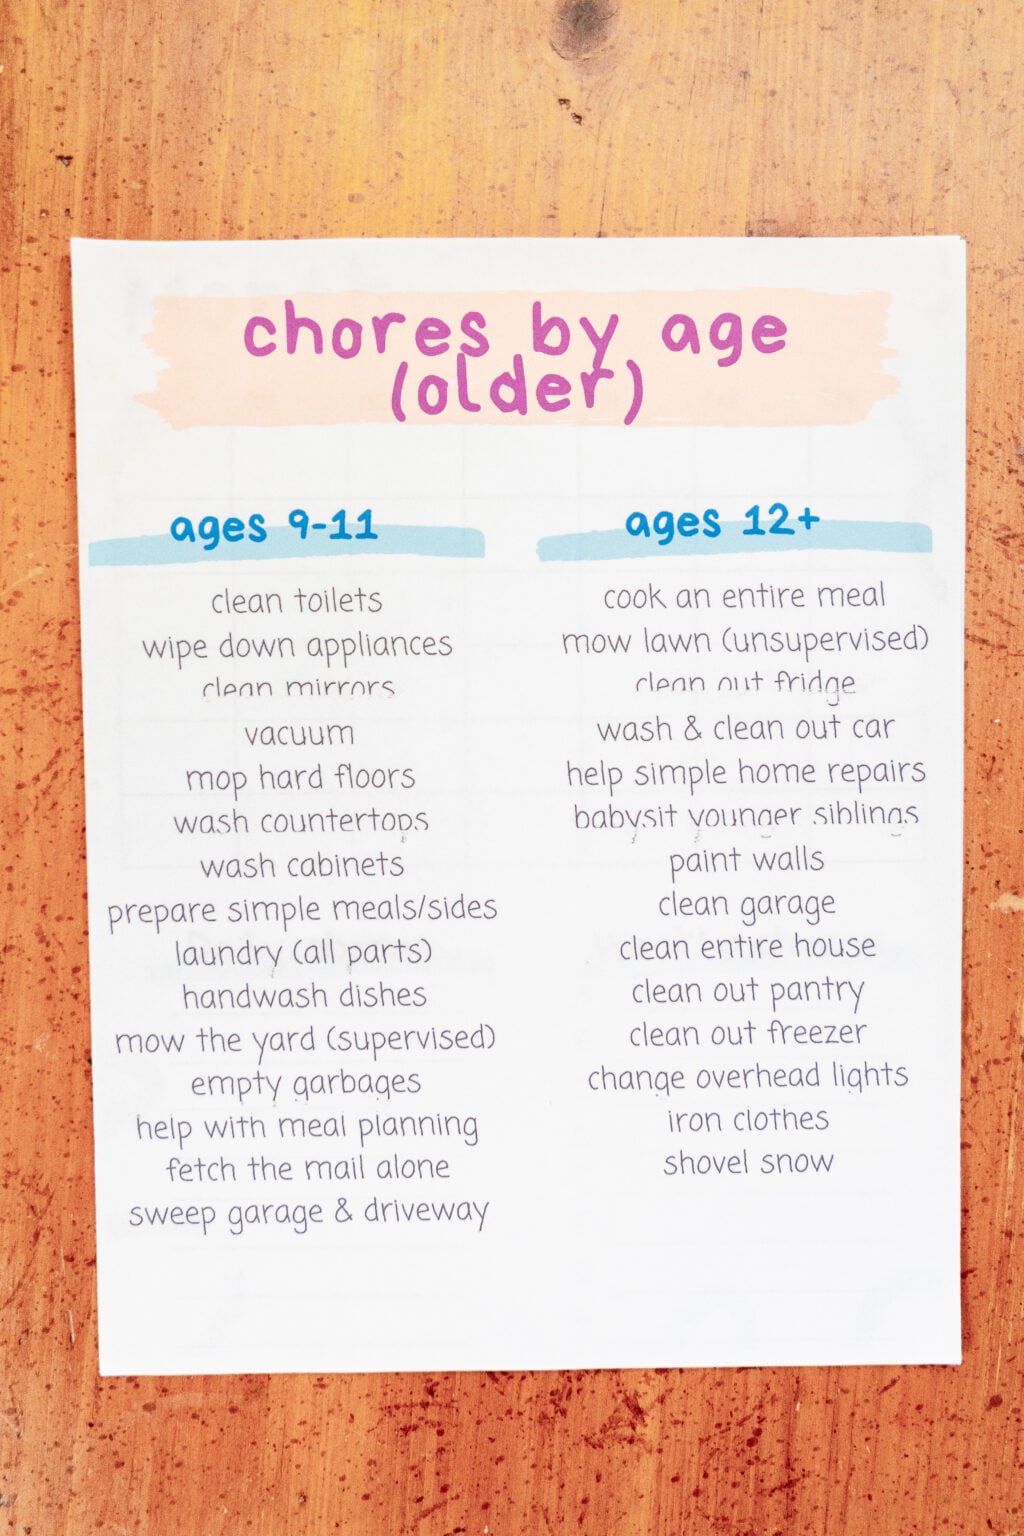 chores by age
(older)
ages 9-11
clean toilets
wipe down appliances
clean mirrors
vacuum
mop hard floors
wash countertops
wash cabinets
prepare simple meals/sides
laundry (all parts)
handwash dishes
mow the yard (supervised)
empty garbages
help with meal planning
fetch the mail alone
sweep garage & driveway
ages 12+
cook an entire meal
mow lawn (unsupervised)
clean out fridge
wash & clean out car
help simple home repairs
babysit younger siblings
paint walls
clean garage
clean entire house
clean out pantry
clean out freezer
change overhead lights
iron clothes
shovel snow